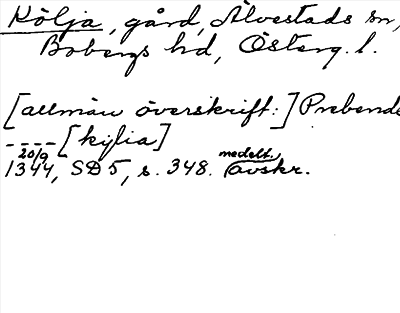 Kölja, gård, Älvestads sn,
Bobergs hd, Österg. l.
[allmän överskrift:] Prebende
---- [kylia]
20/9
1344, SD 5, s. 348. medelt. avskr.